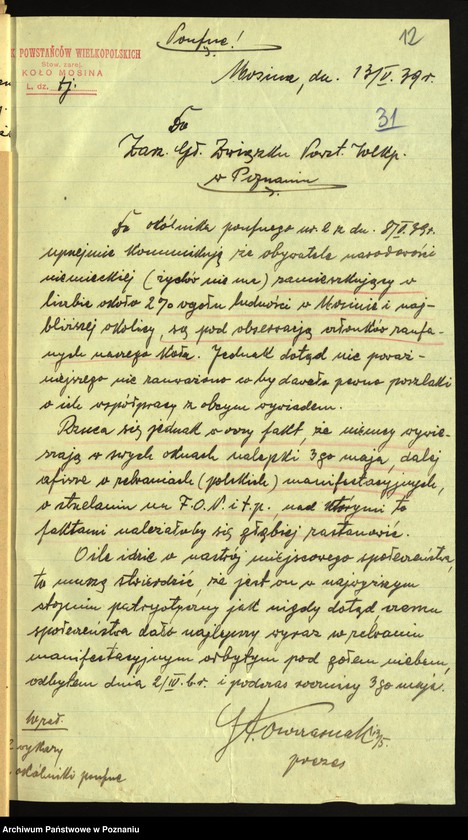 Poufne!
12
K POWSTAŃCÓW WIELKOPOLSKICH
Stow. zarej.
KOŁO MOSINA
L. dz.
Mosina, dn. 13/V. 39 r.
31
Do
Zarz. Gł. Związku Powst. Wlkp.
w Poznaniu
Do okólnika poufnego nr. 2 z dn. 8/V.39r.
uprzejmie komunikuję że obywatele narodowości
niemieckiej (żydów nie ma) zamieszkujący w
liczbie około 2% ogółu ludności w Mosinie i naj-
bliższej okolicy, są pod obserwacją członków zaufa-
nych naszego koła. Jednak dotąd nic poważ-
niejszego nie zauważono co by dawało pewne poszlaki
o ich współpracy z obcym wywiadem.
Rzuca się jednak w oczy fakt, że niemcy wywie-
szają w swych oknach nalepki 3go maja, dalej
afisze o zebraniach (polskich) manifestacyjnych,
o strzelaniu na F.O.N. i t.p., nad którymi to
faktami należałoby się głębiej zastanowić.
O ile idzie o nastrój miejscowego społeczeństwa,
to muszę stwierdzić, że jest on w najwyższym
stopniu patryotyczny jak nigdy dotąd czemu
społeczeństwo dało najlepszy wyraz w zebraniu
manifestacyjnym odbytym pod gołem niebem,
odbytem dnia 2/IV. b.r. i podczas rocznicy 3go maja.
prezes
wykazy
okólniki poufne
Archiwum Państwowe w Poznaniu